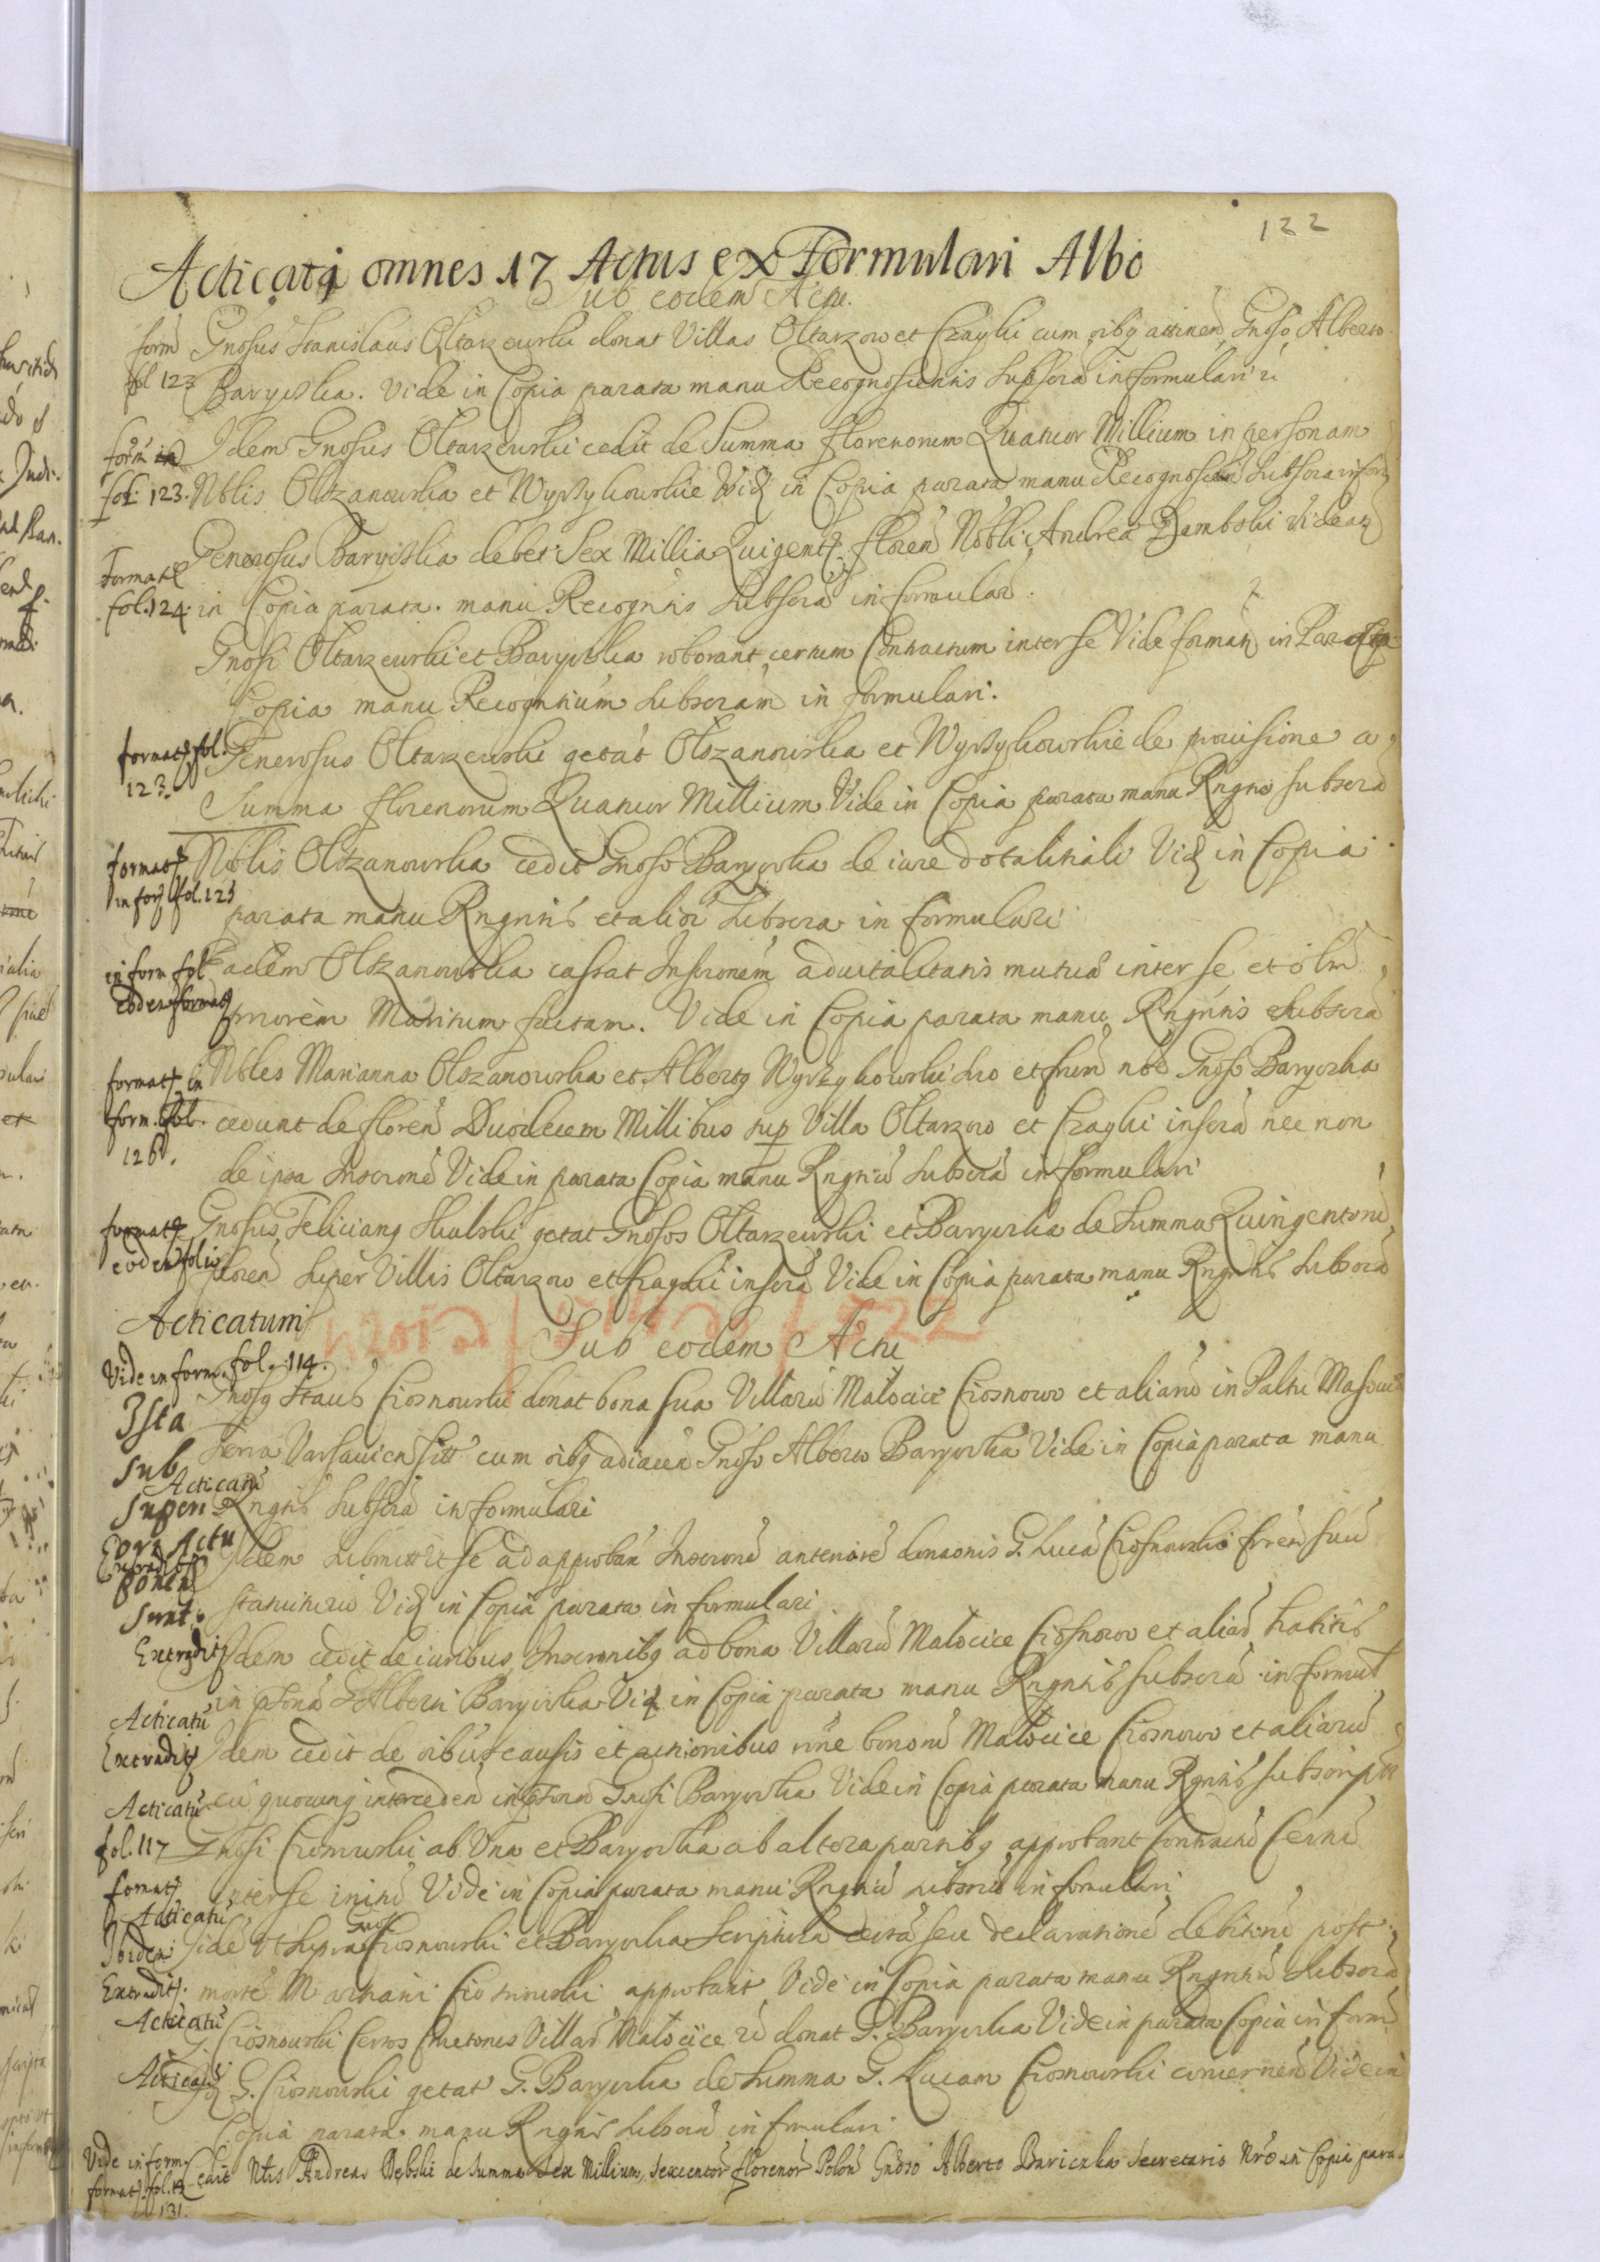 122
Acticati omnes 17 Actus ex Formulari Albo
Sub eodem Actu.
form Gnosus Stanislaus Ołtarzewski donat Villas Ołtarzow et Czaglii cum oibq attinen Gnoso Alberto
fol 123 Baryczka. Vide in Copia parata manu Recognoscentis subscra in formulari
form Idem Gnosus Ołtarzewski cedit de Summa florenorum Quatuor Millium in personam
fol: 123. Nblis Olszanowska et Wyszykowskie Vid in Copia parata manu Recognoscen subscra in for
Generosus Baryczka debet Sex Millia Quigent floren Nobli Andrea Dambski videat
formatq
fol. 124. in Copia parata. manu Recogntis subscra in formular.
Gnosi Ołtarzewski et Baryczka roborant certum Contractum inter se Vide format in Parata
Copia manu Recogntium subscram in formulari.
format fol. Generosus Ołtarzewski qetat Olszanowska et Wyszykowskie de provisione a
123. Summa florenorum Quatuor Millium Vide in Copia parata manu Rngtis subscra
format Nblis Olszanowska cedit Gnoso Baryczka de iure dotalitali Vid in Copia
in for fol. 123 parata manu Rngntis et alior subscra in formulari
in form fol Eadem Olszanowska cassat Inscronem advitalitatis mutua inter se et olim
eodem format priorem Maritum factam. Vide in Copia parata manu Rngntis subscra
format in Nbles Marianna Olszanowska et Albertq Wyszykowski suo et frum nōe Gnoso Baryczka
form. fol. cedunt de floren Duodecem Millibus sup Villa Ołtarzow et Czaglii inscra nec non
126. de ipsa Inscrone Vide in parata Copia manu Rngtiu subscra in formulari
formatq Gnosus Felicianq Skulski qetat Gnosos Ołtarzewski et Baryczka de Summa Quingentoru
eodem folio floren super Villis Ołtarzow et Czaglii inscra Vide in Copia parata manu Rngntis subscra
Acticatum
Sub eodem Actu
Vide in form. fol. 114.
Gnosq Staus Ciosnowski donat bona sua Villaru Małocice Ciosnowo et aliaru in Paltu Masovia
Ista
Terra Varsavien sitt cum oibq adiacen Gnoso Alberto Baryczka Vide in Copia parata manu
sub
Acticatu
super Rngtis subscra in formulari
Eorz Actu Idem submittit se ad approban Inscrone anteriore donaonis G. Luca Ciosnowskio frem suu
Extradit
ponen
sunt. Vid in Copia parata in formulari
Extradit Idem cedit de iuribus Inscronibq ad bona Villaru Małocice Ciosnowo et aliar habitis
in psona G Alberti Baryczka Vid in Copia parata manu Rngntis subscra in formul
Acticatu
Extradit Idem cedit de oibus causis et actionibus rne bonoru Małocice Ciosnowo et aliaru
Acticatu cu quocunq interceden in psona Gnosi Baryczka Vide in Copia parata manu Rgntis subscript
fol. 117 Gnosi Ciosnowski ab Una et Baryczka ab altera partibq approbant Contractu Certu
format inter se initu Vide in Copia parata manu Rngtiu subscra in formulari
Acticatu
Ibidem Iide ut supra Gnosi Ciosnowski et Baryczka Scriptura certa seu declaratione debitoru post
Extradit. morte Martiani Ciosnowski approbant Vide in Copia parata manu Rngntiu subscra
Acticatu
G. Ciosnowski Certos Cmetones Villar Małocice donat G. Baryczka Vide in parata Copia in form
Acticatu
Id G. Ciosnowski qetat G. Baryczka de Summa G. Lucam Ciosnowski concernen Vide in
Copia parata manu Rngtis subscra in formulari
Vide in form Cedit Nblis Andreas Dębski de Summa Sex Millium, sexcentor florenor Polon Gnoso Alberto Bariczka Secretario Nro in Copia para
format. fol.
131.